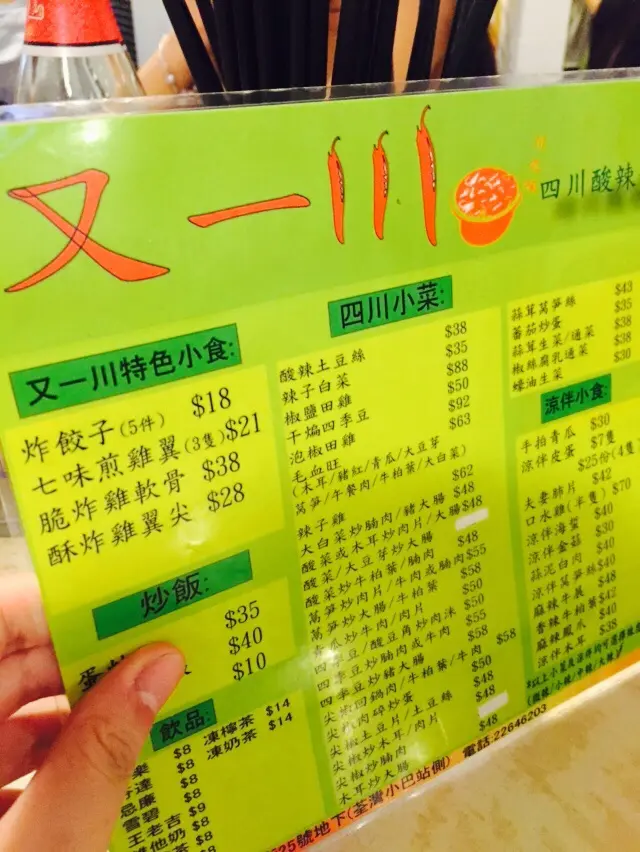 又一川
四川酸辣
又一川特色小食:
炸餃子(5件) $18
七味煎雞翼(3隻) $21
脆炸雞軟骨 $38
酥炸雞翼尖 $28
炒飯:
$35
$40
$10
飲品:
凍檸茶 $14
凍奶茶 $14
$8
$8
忌廉 $8
雪碧 $8
王老吉 $9
維他奶 $8
四川小菜:
酸辣土豆絲 $38
辣子白菜 $35
椒鹽田雞 $88
干煸四季豆 $50
泡椒田雞 $92
毛血旺 $63
(木耳/豬紅/青瓜/大豆芽
萵笋/午餐肉/牛柏葉/大白菜)
辣子雞 $62
大白菜炒腩肉/豬大腸 $48
酸菜或木耳炒肉片/大腸 $48
酸菜/大豆芽炒大腸
酸菜炒牛柏葉/腩肉 $48
萵笋炒肉片/牛肉或腩肉 $55
萵笋炒大腸/牛柏葉 $58
青瓜炒牛肉/肉片 $50
四季豆/酸豆角炒肉沫 $50
四季豆炒腩肉或牛肉 $55
四季豆炒豬大腸 $58
尖椒回鍋肉/牛柏葉/牛肉 $58
尖椒肉碎炒蛋 $50
尖椒土豆片/土豆絲
尖椒炒木耳/肉片 $48
尖椒炒腩肉
木耳炒大腸 $48
蒜茸萵笋絲 $43
蕃茄炒蛋 $35
蒜茸生菜/通菜 $38
椒絲腐乳通菜 $38
蠔油生菜 $30
涼伴小食:
手拍青瓜 $30
涼伴皮蛋 $7隻
$25份(4隻
夫妻肺片 $42
口水雞(半隻) $70
涼伴海蜇 $40
涼伴金菇 $30
蒜泥白肉 $40
涼伴萵笋絲 $40
麻辣牛展 $48
香辣牛柏葉 $42
麻辣鳳爪 $40
涼伴木耳 $38
25號地下(荃灣小巴站側) 電話:22646203